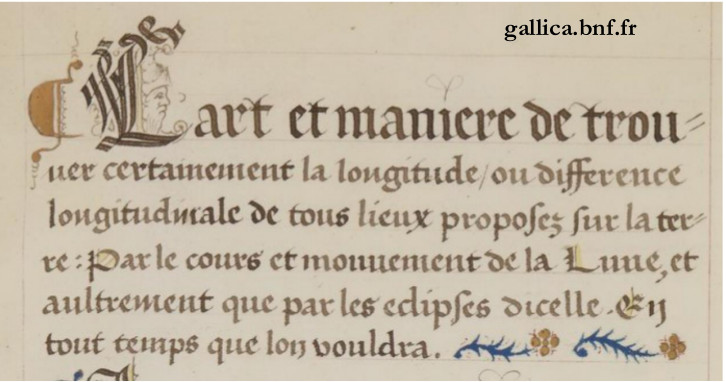 gallica.bnf.fr
Lart et maniere de trou⸗
uer certainement la longitude/ou difference
longitudinale de tous lieux proposez sur la ter⸗
re : Par le cours et mouuement de la Lune, et
aultrement que par les eclipses dicelle . En
tout temps que lon vouldra .